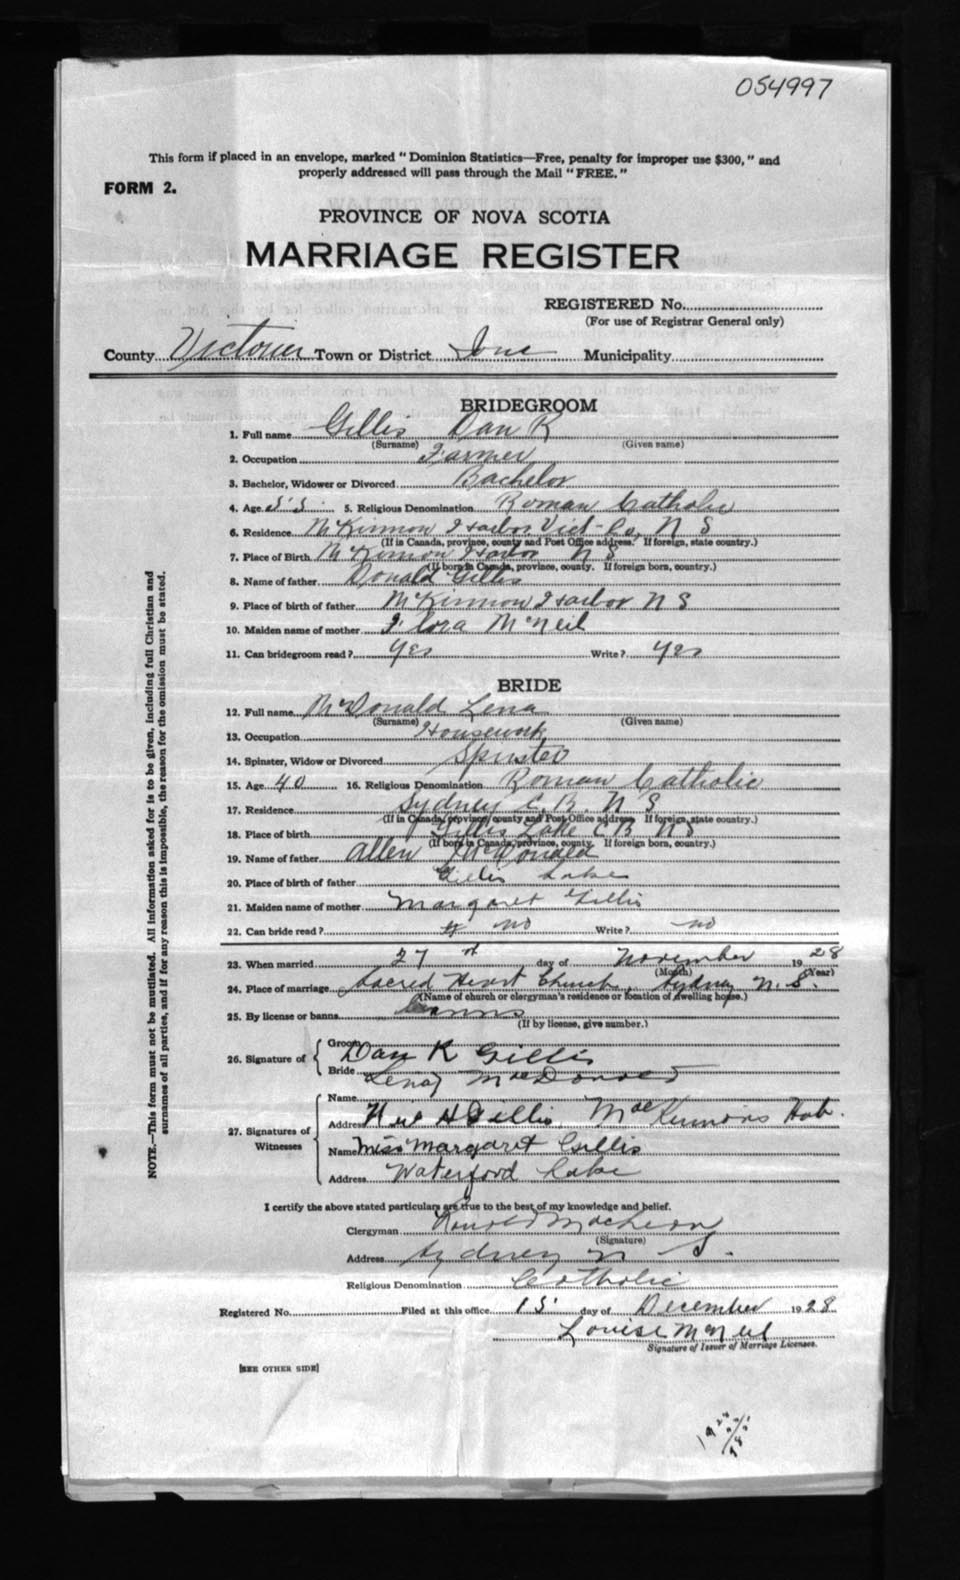 054997
This form if placed in an envelope, marked "Dominion Statistics—Free, penalty for improper use $300," and
properly addressed will pass through the Mail "FREE."
FORM 2.
PROVINCE OF NOVA SCOTIA
MARRIAGE REGISTER
REGISTERED No.
(For use of Registrar General only)
County Victoria Town or District Iona Municipality
BRIDEGROOM
1. Full name Gillis Dan R
(Surname) (Given name)
2. Occupation Farmer
3. Bachelor, Widower or Divorced Bachelor
4. Age 55 5. Religious Denomination Roman Catholic
6. Residence McKinnon Harbor Vict-Co, N S
(If in Canada, province, county and Post Office address. If foreign, state country.)
7. Place of Birth McKinnon Harbor N S
(If born in Canada, province, county. If foreign born, country.)
8. Name of father Donald Gillis
9. Place of birth of father McKinnon Harbor N S
10. Maiden name of mother Flora McNeil
11. Can bridegroom read? Yes Write? Yes
BRIDE
12. Full name McDonald Lena
(Surname) (Given name)
13. Occupation Housework
14. Spinster, Widow or Divorced Spinster
15. Age 40 16. Religious Denomination Roman Catholic
17. Residence Sydney C. B. N S
(If in Canada, province, county and Post Office address. If foreign, state country.)
18. Place of birth Gillis Lake C B N S
(If born in Canada, province, county. If foreign born, country.)
19. Name of father Allen McDonald
20. Place of birth of father Gillis Lake
21. Maiden name of mother Margaret Gillis
22. Can bride read? no Write? no
23. When married 27 day of November 1928
(Month) (Year)
24. Place of marriage Sacred Heart Church, Sydney N. S.
(Name of church or clergyman's residence or location of dwelling house.)
25. By license or banns Banns
(If by license, give number.)
26. Signature of
Groom Dan R Gillis
Bride Lena MacDonald
27. Signatures of Witnesses
Name
Address Neil H Gillis, MacKinnons Hab.
Name Miss Margaret Gillis
Address Waterford Lake
I certify the above stated particulars are true to the best of my knowledge and belief.
Clergyman Ronald
(Signature)
Address Sydney N S.
Religious Denomination Catholic
Registered No. Filed at this office 15 day of December 1928
Louise McNeil
Signature of Issuer of Marriage Licenses.
[SEE OTHER SIDE]
NOTE.—This form must not be mutilated. All information asked for is to be given, including full Christian and
surnames of all parties, and if for any reason this is impossible, the reason for the omission must be stated.